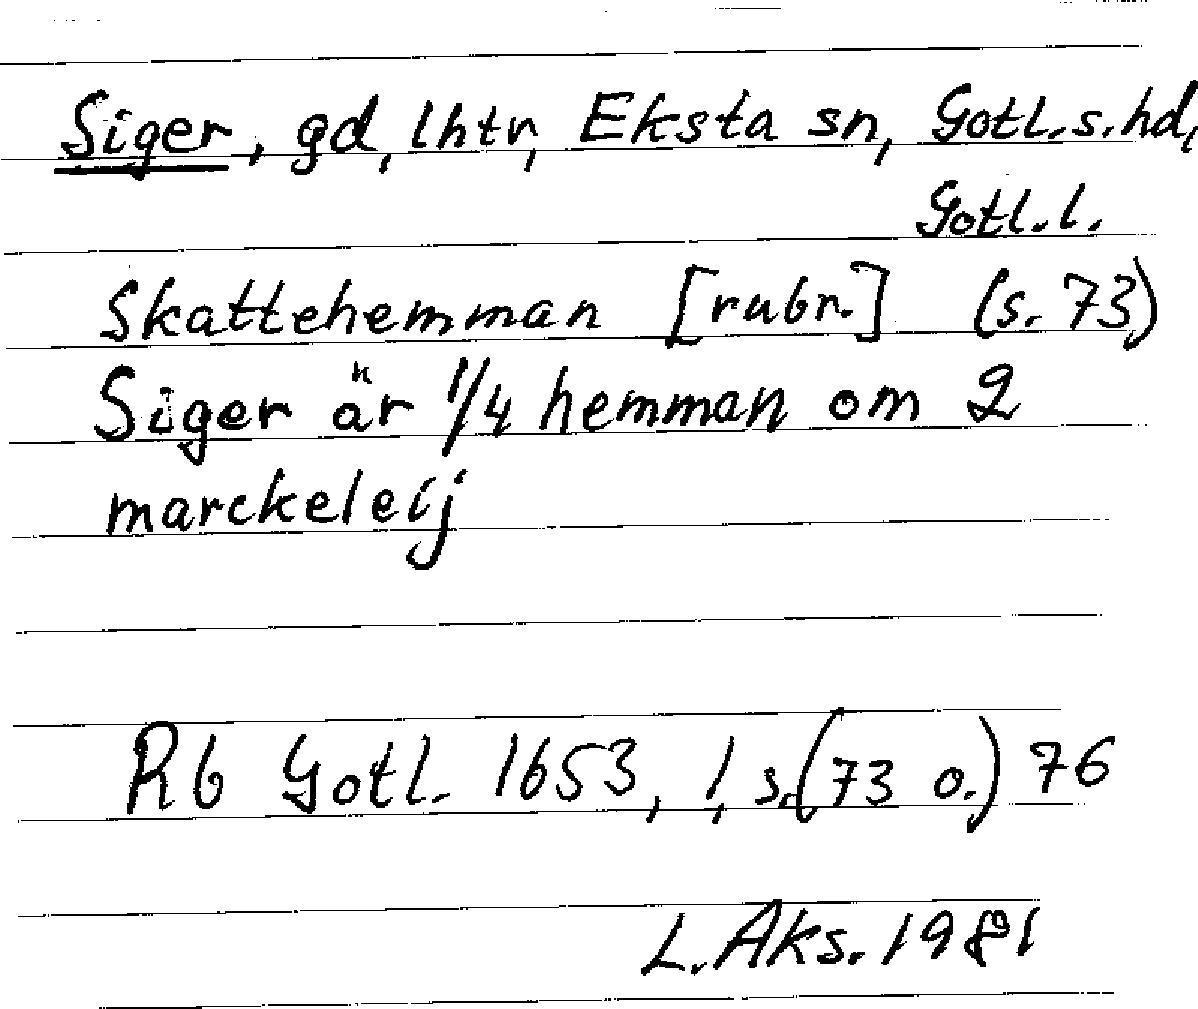 Siger, gd, lhtr, Eksta sn, Gotl.s.hd,
Gotl.l.
Skattehemman [rubr.] (s. 73)
Siger är 1/4 hemman om 2
marckeleij
Rb Gotl. 1653, 1, s.(73 o.) 76
L.Aks. 1981